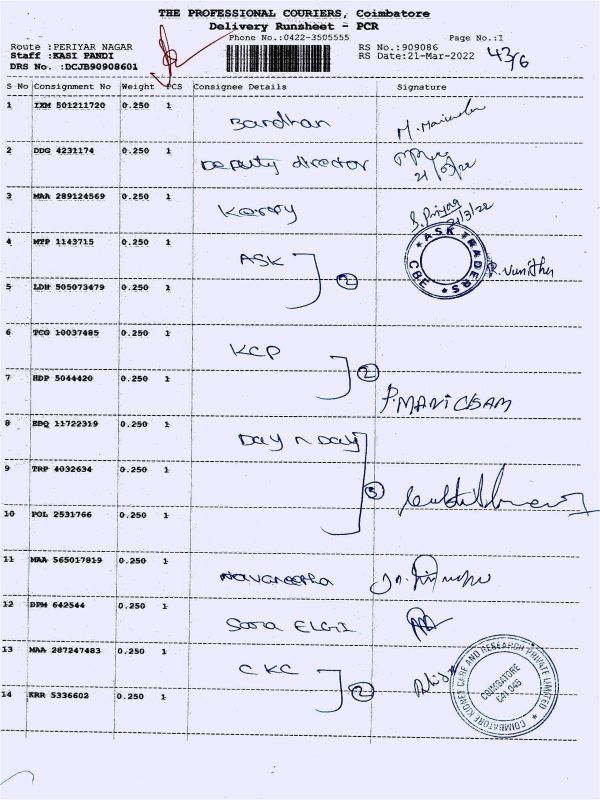 THE PROFESSIONAL COURIERS, Coimbatore
Delivery Runsheet - PCR
Phone No.:0422-3505555 Page No.:1
Route :PERIYAR NAGAR RS No.:909086
Staff :KASI PANDI RS Date:21-Mar-2022 43/6
DRS No. :DCJB90908601
S No Consignment No Weight PCS Consignee Details Signature
1 IXM 501211720 0.250 1 Bardhan
2 DDG 4231174 0.250 1 Deputy director 21/03/22
3 MAA 289124569 0.250 1 Karry S. Priya 21/3/22
4 MTP 1143715 0.250 1 ASK R. Vunitha
★ ASK TRADERS ★ CBE
5 LDH 505073479 0.250 1 2
6 TCG 10037485 0.250 1 KCP
7 HDP 5044420 0.250 1 2 P.MANICKAM
8 EDQ 11722319 0.250 1 Day n Day
9 TRP 4032634 0.250 1 3
10 POL 2531766 0.250 1
11 MAA 565017819 0.250 1 Navaneetha
12 DPM 642544 0.250 1 Sara ELGI
13 MAA 287247483 0.250 1 CKC
14 KRR 5336602 0.250 1 2
COIMBATORE KIDNEY CARE AND RESEARCH PRIVATE LIMITED
COIMBATORE